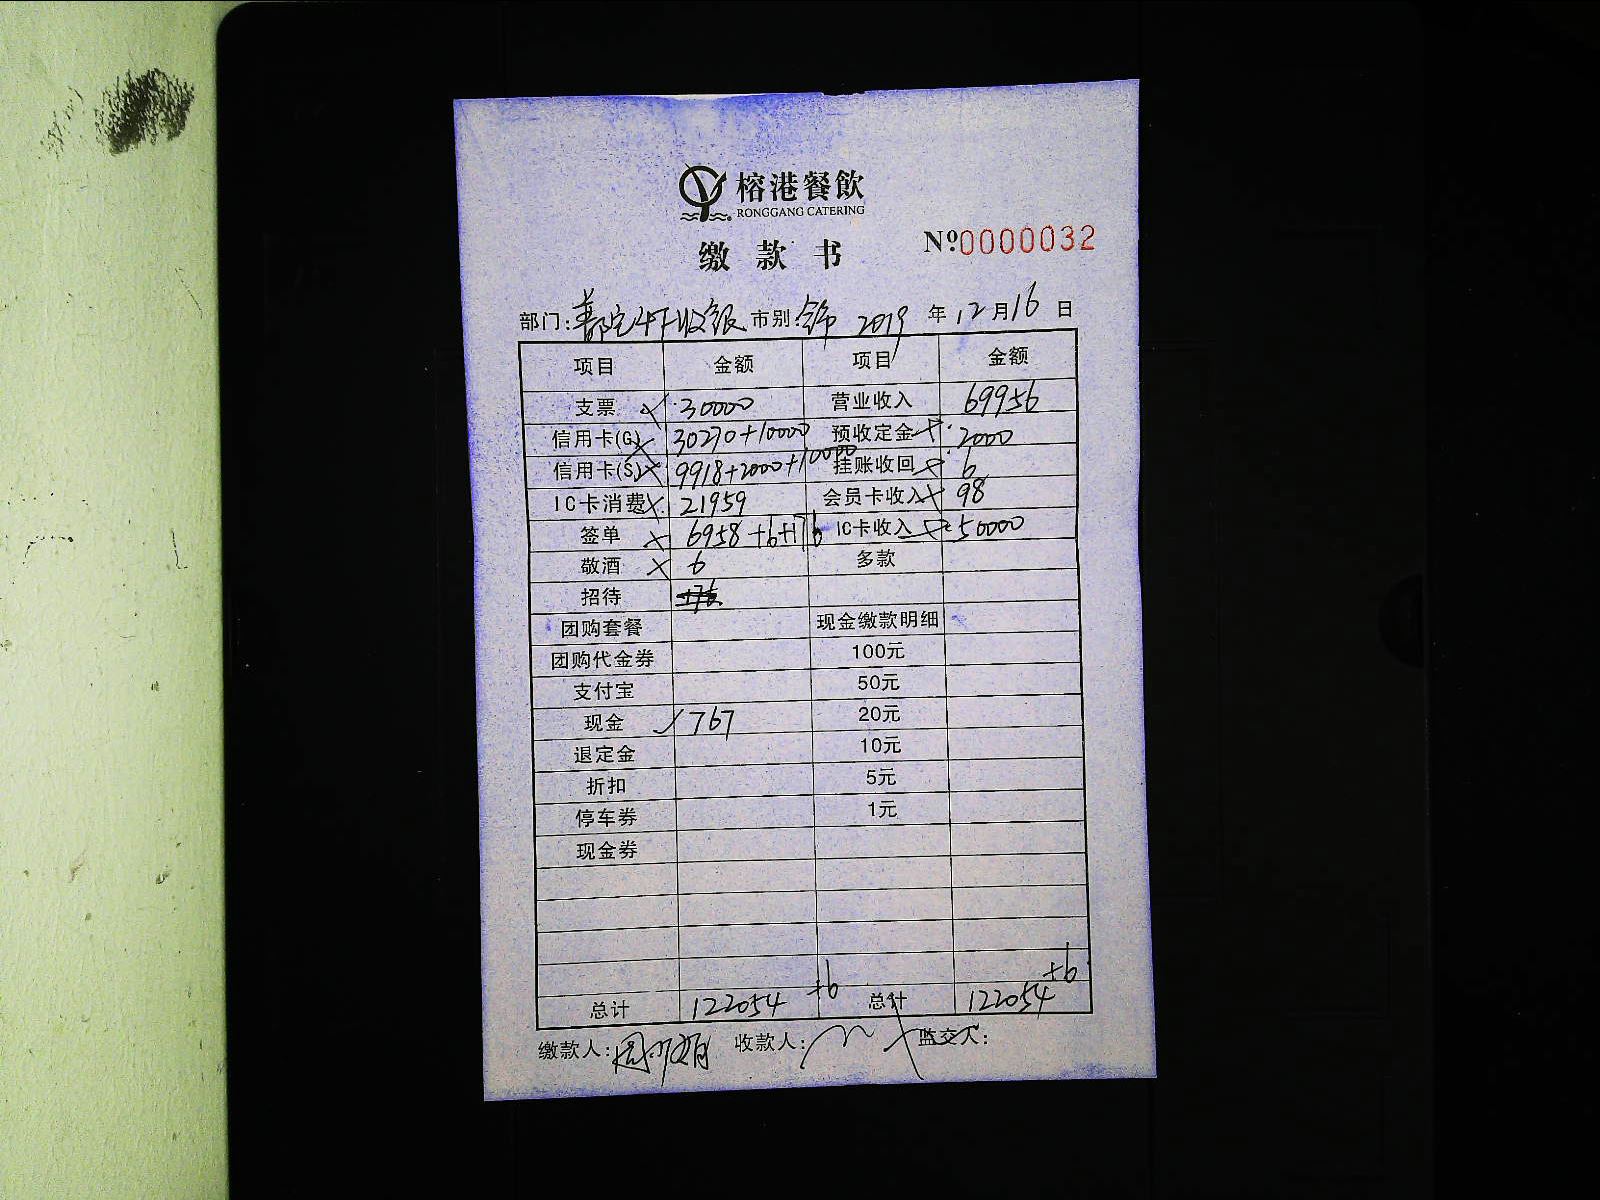 榕港餐飲
RONGGANG CATERING
缴款书
Nº0000032
部门: 收银 市别: 2019 年 12 月 16 日
项目 金额 项目 金额
支票 30000 营业收入 69956
信用卡(G) 30270+10000 预收定金 2000
信用卡(S) 9918+2000+10000 挂账收回 6
IC卡消费 21959 会员卡收入 98
签单 6958+6+176 IC卡收入 50000
敬酒 6 多款
招待
团购套餐 现金缴款明细
团购代金券 100元
支付宝 50元
现金 767 20元
退定金 10元
折扣 5元
停车券 1元
现金券
总计 122054 +6 总计 122054 +6
缴款人: 收款人: 监交人: